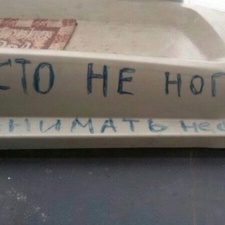 СТО НЕ НОГ
НИМАТЬ нео